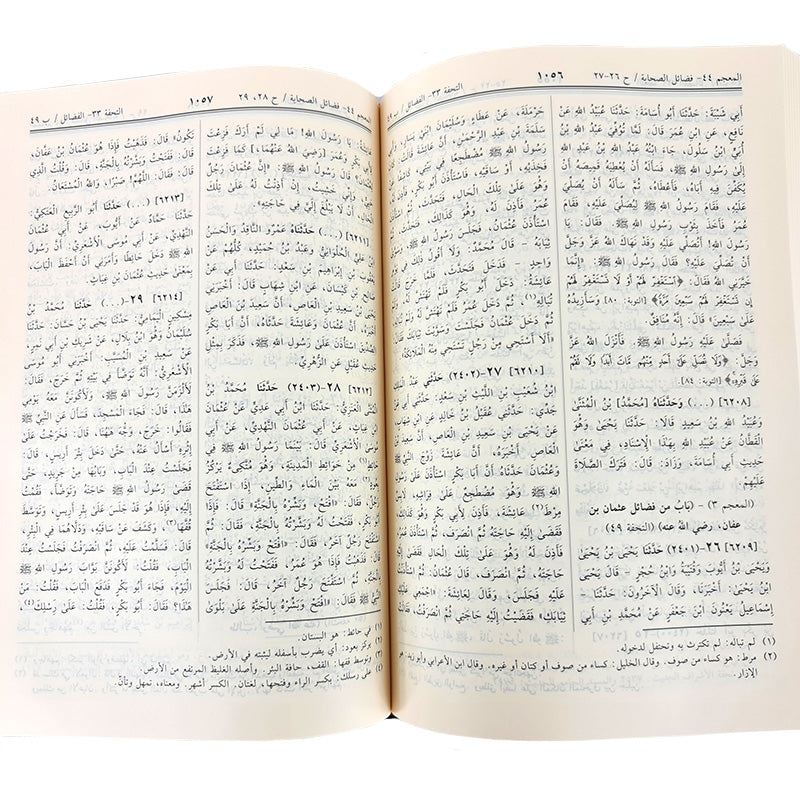 المعجم ٤٤- فضائل الصحابة / ح ٢٦-٢٧
١٠٥٦
التحفة ٣٣- الفضائل / ب ٤٩
أَبِي شَيْبَةَ: حَدَّثَنَا أَبُو أُسَامَةَ: حَدَّثَنَا عُبَيْدُ اللهِ عَنْ
نَافِعٍ، عَنِ ابْنِ عُمَرَ قَالَ: لَمَّا تُوُفِّيَ عَبْدُ اللهِ بْنُ
أُبَيٍّ ابْنُ سَلُولَ، جَاءَ ابْنُهُ عَبْدُ اللهِ بْنُ عَبْدِ اللهِ إِلَىٰ
رَسُولِ اللهِ ﷺ، فَسَأَلَهُ أَنْ يُعْطِيَهُ قَمِيصَهُ أَنْ
يُكَفِّنَ فِيهِ أَبَاهُ، فَأَعْطَاهُ، ثُمَّ سَأَلَهُ أَنْ يُصَلِّيَ
عَلَيْهِ، فَقَامَ رَسُولُ اللهِ ﷺ لِيُصَلِّيَ عَلَيْهِ، فَقَامَ
عُمَرُ فَأَخَذَ بِثَوْبِ رَسُولِ اللهِ ﷺ. فَقَالَ: يَا
رَسُولَ اللهِ! أَتُصَلِّي عَلَيْهِ وَقَدْ نَهَاكَ اللهُ عَزَّ وَجَلَّ
أَنْ تُصَلِّيَ عَلَيْهِ؟ فَقَالَ رَسُولُ اللهِ ﷺ: «إِنَّمَا
خَيَّرَنِي اللهُ فَقَالَ: ﴿اسْتَغْفِرْ لَهُمْ أَوْ لَا تَسْتَغْفِرْ لَهُمْ
إِن تَسْتَغْفِرْ لَهُمْ سَبْعِينَ مَرَّةً﴾ [التوبة: ٨٠] وَسَأَزِيدُهُ
عَلَىٰ سَبْعِينَ» قَالَ: إِنَّهُ مُنَافِقٌ.
فَصَلَّىٰ عَلَيْهِ رَسُولُ اللهِ ﷺ، فَأَنْزَلَ اللهُ عَزَّ
وَجَلَّ: ﴿وَلَا تُصَلِّ عَلَىٰ أَحَدٍ مِّنْهُم مَّاتَ أَبَدًا وَلَا تَقُمْ
عَلَىٰ قَبْرِهِ﴾ [التوبة: ٨٤].
[٦٢٠٨] (...) وَحَدَّثَنَاهُ [مُحَمَّدُ] بْنُ الْمُثَنَّىٰ
وَعُبَيْدُ اللهِ بْنُ سَعِيدٍ قَالَا: حَدَّثَنَا يَحْيَىٰ وَهُوَ
الْقَطَّانُ عَنْ عُبَيْدِ اللهِ بِهَذَا الْإِسْنَادِ، فِي مَعْنَىٰ
حَدِيثِ أَبِي أُسَامَةَ، وَزَادَ: قَالَ: فَتَرَكَ الصَّلَاةَ
عَلَيْهِمْ.
(المعجم ٣) - (بَابٌ مِن فضائل عثمان بن
عفان، رضي اللهُ عنه) (التحفة ٤٩)
[٦٢٠٩] ٢٦-(٢٤٠١) حَدَّثَنَا يَحْيَىٰ بْنُ يَحْيَىٰ
وَيَحْيَىٰ بْنُ أَيُّوبَ وَقُتَيْبَةُ وَابْنُ حُجْرٍ - قَالَ يَحْيَىٰ
ابْنُ يَحْيَىٰ: أَخْبَرَنَا، وَقَالَ الْآخَرُونَ: حَدَّثَنَا -
إِسْمَاعِيلُ يَعْنُونَ ابْنَ جَعْفَرٍ عَنْ مُحَمَّدِ بْنِ أَبِي
حَرْمَلَةَ، عَنْ عَطَاءٍ وَسُلَيْمَانَ ابْنَيْ يَسَارٍ، وَأَبِي
سَلَمَةَ بْنِ عَبْدِ الرَّحْمٰنِ، أَنَّ عَائِشَةَ قَالَتْ: كَانَ
رَسُولُ اللهِ ﷺ مُضْطَجِعًا فِي بَيْتِي، كَاشِفًا عَنْ
فَخِذَيْهِ، أَوْ سَاقَيْهِ، فَاسْتَأْذَنَ أَبُو بَكْرٍ، فَأَذِنَ لَهُ،
وَهُوَ عَلَىٰ تِلْكَ الْحَالِ، فَتَحَدَّثَ، ثُمَّ اسْتَأْذَنَ
عُمَرُ فَأَذِنَ لَهُ، وَهُوَ كَذَلِكَ، فَتَحَدَّثَ، ثُمَّ
اسْتَأْذَنَ عُثْمَانُ، فَجَلَسَ رَسُولُ اللهِ ﷺ، وَسَوَّىٰ
ثِيَابَهُ - قَالَ مُحَمَّدٌ: وَلَا أَقُولُ ذَلِكَ فِي يَوْمٍ
وَاحِدٍ - فَدَخَلَ فَتَحَدَّثَ، فَلَمَّا خَرَجَ قَالَتْ
عَائِشَةُ: دَخَلَ أَبُو بَكْرٍ فَلَمْ تَهْتَشَّ لَهُ وَلَمْ
تُبَالِهِ(١)، ثُمَّ دَخَلَ عُمَرُ فَلَمْ تَهْتَشَّ لَهُ وَلَمْ تُبَالِهِ،
ثُمَّ دَخَلَ عُثْمَانُ فَجَلَسْتَ وَسَوَّيْتَ ثِيَابَكَ فَقَالَ:
«أَلَا أَسْتَحِي مِنْ رَجُلٍ تَسْتَحِي مِنْهُ الْمَلَائِكَةُ».
[٦٢١٠] ٢٧-(٢٤٠٢) حَدَّثَنِي عَبْدُ الْمَلِكِ
ابْنُ شُعَيْبِ بْنِ اللَّيْثِ بْنِ سَعْدٍ: حَدَّثَنِي أَبِي عَنْ
جَدِّي: حَدَّثَنِي عُقَيْلُ بْنُ خَالِدٍ عَنِ ابْنِ شِهَابٍ،
عَنْ يَحْيَىٰ بْنِ سَعِيدِ بْنِ الْعَاصِ، أَنَّ سَعِيدَ بْنَ
الْعَاصِ أَخْبَرَهُ، أَنَّ عَائِشَةَ زَوْجَ النَّبِيِّ ﷺ
وَعُثْمَانَ حَدَّثَاهُ أَنَّ أَبَا بَكْرٍ اسْتَأْذَنَ عَلَىٰ رَسُولِ
اللهِ ﷺ وَهُوَ مُضْطَجِعٌ عَلَىٰ فِرَاشِهِ، لَابِسٌ
مِرْطَ(٢) عَائِشَةَ، فَأَذِنَ لِأَبِي بَكْرٍ وَهُوَ كَذَلِكَ،
فَقَضَىٰ إِلَيْهِ حَاجَتَهُ ثُمَّ انْصَرَفَ، ثُمَّ اسْتَأْذَنَ عُمَرُ،
فَأَذِنَ لَهُ، وَهُوَ عَلَىٰ تِلْكَ الْحَالِ فَقَضَىٰ إِلَيْهِ
حَاجَتَهُ، ثُمَّ انْصَرَفَ، قَالَ عُثْمَانُ: ثُمَّ اسْتَأْذَنْتُ
عَلَيْهِ فَجَلَسَ، وَقَالَ لِعَائِشَةَ: «اجْمَعِي عَلَيْكِ
ثِيَابَكِ» فَقَضَيْتُ إِلَيْهِ حَاجَتِي ثُمَّ انْصَرَفْتُ، فَقَالَتْ
(١) لم تباله: لم تكترث به وتحتفل لدخوله.
(٢) مرط: هو كساء من صوف. وقال الخليل: كساء من صوف أو كتان أو غيره. وقال ابن الأعرابي وأبو زيد: هو
الإزار.
المعجم ٤٤- فضائل الصحابة / ح ٢٨، ٢٩
١٠٥٧
التحفة ٣٣- الفضائل / ب ٤٩
عَائِشَةُ: يَا رَسُولَ اللهِ! مَا لِي لَمْ أَرَكَ فَزِعْتَ
لِأَبِي بَكْرٍ وَعُمَرَ [رَضِيَ اللهُ عَنْهُمَا] كَمَا فَزِعْتَ
لِعُثْمَانَ؟ قَالَ رَسُولُ اللهِ ﷺ: «إِنَّ عُثْمَانَ رَجُلٌ
حَيِيٌّ، وَإِنِّي خَشِيتُ، إِنْ أَذِنْتُ لَهُ عَلَىٰ تِلْكَ
الْحَالِ، أَنْ لَا يَبْلُغَ إِلَيَّ فِي حَاجَتِهِ».
[٦٢١١] (...) حَدَّثَنَاهُ عَمْرٌو النَّاقِدُ وَالْحَسَنُ
ابْنُ عَلِيٍّ الْحُلْوَانِيُّ وَعَبْدُ بْنُ حُمَيْدٍ، كُلُّهُمْ عَنْ
يَعْقُوبَ بْنِ إِبْرَاهِيمَ بْنِ سَعْدٍ: حَدَّثَنَا أَبِي عَنْ
صَالِحِ بْنِ كَيْسَانَ، عَنِ ابْنِ شِهَابٍ قَالَ: أَخْبَرَنِي
يَحْيَىٰ بْنُ سَعِيدِ بْنِ الْعَاصِ، أَنَّ سَعِيدَ بْنَ الْعَاصِ
أَخْبَرَهُ، أَنَّ عُثْمَانَ وَعَائِشَةَ حَدَّثَاهُ، أَنَّ أَبَا بَكْرٍ
الصِّدِّيقَ اسْتَأْذَنَ عَلَىٰ رَسُولِ اللهِ ﷺ، فَذَكَرَ بِمِثْلِ
حَدِيثِ عُقَيْلٍ عَنِ الزُّهْرِيِّ.
[٦٢١٢] ٢٨-(٢٤٠٣) حَدَّثَنَا مُحَمَّدُ بْنُ
الْمُثَنَّى الْعَنَزِيُّ: حَدَّثَنَا ابْنُ أَبِي عَدِيٍّ عَنْ عُثْمَانَ
بْنِ غِيَاثٍ، عَنْ أَبِي عُثْمَانَ النَّهْدِيِّ، عَنْ أَبِي مُوسَى
الْأَشْعَرِيِّ قَالَ: بَيْنَمَا رَسُولُ اللهِ ﷺ فِي حَائِطٍ(١)
مِنْ حَوَائِطِ الْمَدِينَةِ، وَهُوَ مُتَّكِىءٌ يَرْكُزُ
بِعُودٍ(٢) مَعَهُ بَيْنَ الْمَاءِ وَالطِّينِ، إِذَا اسْتَفْتَحَ
رَجُلٌ، فَقَالَ: «افْتَحْ، وَبَشِّرْهُ بِالْجَنَّةِ» قَالَ: فَإِذَا
أَبُو بَكْرٍ فَفَتَحْتُ لَهُ وَبَشَّرْتُهُ بِالْجَنَّةِ، قَالَ: ثُمَّ
اسْتَفْتَحَ رَجُلٌ آخَرُ، فَقَالَ: «افْتَحْ وَبَشِّرْهُ بِالْجَنَّةِ»
قَالَ: فَذَهَبْتُ فَإِذَا هُوَ عُمَرُ فَفَتَحْتُ لَهُ وَبَشَّرْتُهُ
بِالْجَنَّةِ، ثُمَّ اسْتَفْتَحَ رَجُلٌ آخَرُ، قَالَ: فَجَلَسَ
النَّبِيُّ ﷺ فَقَالَ: «افْتَحْ وَبَشِّرْهُ بِالْجَنَّةِ عَلَىٰ بَلْوَىٰ
تَكُونُ» قَالَ: فَذَهَبْتُ فَإِذَا هُوَ عُثْمَانُ بْنُ عَفَّانَ،
قَالَ: فَفَتَحْتُ وَبَشَّرْتُهُ بِالْجَنَّةِ، قَالَ: وَقُلْتُ الَّذِي
قَالَ: فَقَالَ: اللَّهُمَّ! صَبْرًا، وَاللهُ الْمُسْتَعَانُ.
[٦٢١٣] (...) حَدَّثَنَا أَبُو الرَّبِيعِ الْعَتَكِيُّ:
حَدَّثَنَا حَمَّادٌ عَنْ أَيُّوبَ، عَنْ أَبِي عُثْمَانَ
النَّهْدِيِّ، عَنْ أَبِي مُوسَى الْأَشْعَرِيِّ: أَنَّ رَسُولَ
اللهِ ﷺ دَخَلَ حَائِطًا وَأَمَرَنِي أَنْ أَحْفَظَ الْبَابَ،
بِمَعْنَىٰ حَدِيثِ عُثْمَانَ بْنِ غِيَاثٍ.
[٦٢١٤] ٢٩-(...) حَدَّثَنَا مُحَمَّدُ بْنُ
مِسْكِينٍ الْيَمَامِيُّ: حَدَّثَنَا يَحْيَىٰ بْنُ حَسَّانَ: حَدَّثَنَا
سُلَيْمَانُ وَهُوَ ابْنُ بِلَالٍ، عَنْ شَرِيكِ بْنِ أَبِي نَمِرٍ،
عَنْ سَعِيدِ بْنِ الْمُسَيَّبِ: أَخْبَرَنِي أَبُو مُوسَى
الْأَشْعَرِيُّ: أَنَّهُ تَوَضَّأَ فِي بَيْتِهِ ثُمَّ خَرَجَ، فَقَالَ:
لَأَلْزَمَنَّ رَسُولَ اللهِ ﷺ، وَلَأَكُونَنَّ مَعَهُ يَوْمِي
هٰذَا، قَالَ: فَجَاءَ الْمَسْجِدَ، فَسَأَلَ عَنِ النَّبِيِّ ﷺ
فَقَالُوا: خَرَجَ، وَجَّهَ هٰهُنَا، قَالَ: فَخَرَجْتُ عَلَىٰ
إِثْرِهِ أَسْأَلُ عَنْهُ، حَتَّىٰ دَخَلَ بِئْرَ أَرِيسٍ، قَالَ:
فَجَلَسْتُ عِنْدَ الْبَابِ، وَبَابُهَا مِنْ جَرِيدٍ، حَتَّىٰ
قَضَىٰ رَسُولُ اللهِ ﷺ حَاجَتَهُ وَتَوَضَّأَ، فَقُمْتُ
إِلَيْهِ، فَإِذَا هُوَ قَدْ جَلَسَ عَلَىٰ بِئْرِ أَرِيسٍ، وَتَوَسَّطَ
قُفَّهَا(٣)، وَكَشَفَ عَنْ سَاقَيْهِ، وَدَلَّاهُمَا فِي الْبِئْرِ،
قَالَ: فَسَلَّمْتُ عَلَيْهِ، ثُمَّ انْصَرَفْتُ فَجَلَسْتُ عِنْدَ
الْبَابِ، فَقُلْتُ: لَأَكُونَنَّ بَوَّابَ رَسُولِ اللهِ ﷺ
الْيَوْمَ، فَجَاءَ أَبُو بَكْرٍ فَدَفَعَ الْبَابَ، فَقُلْتُ: مَنْ
هٰذَا؟ فَقَالَ: أَبُو بَكْرٍ، فَقُلْتُ: عَلَىٰ رِسْلِكَ(٤)،
(١) في حائط: هو البستان.
(٢) يركز بعود: أي يضرب بأسفله ليثبته في الأرض.
(٣) وتوسط قفها: القف، حافة البئر. وأصله الغليظ المرتفع من الأرض.
(٤) على رسلك: بكسر الراء وفتحها، لغتان. الكسر أشهر. ومعناه، تمهل وتأنَّ.